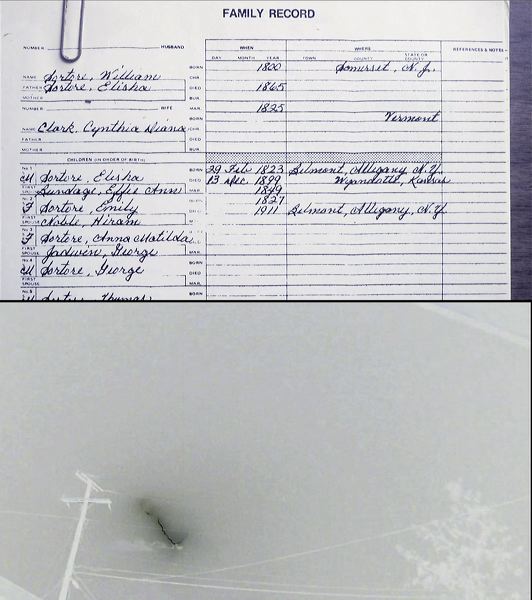 FAMILY RECORD
NUMBER HUSBAND WHEN WHERE REFERENCES & NOTES
DAY MONTH YEAR TOWN COUNTY STATE OR COUNTRY
BORN 1800 Somerset, N.J.
NAME Sortore, William CHR.
FATHER Sortore, Elisha DIED 1865
MOTHER BUR.
NUMBER WIFE MAR. 1825
BORN Vermont
NAME Clark, Cynthia Diana CHR.
FATHER DIED
MOTHER BUR.
CHILDREN (IN ORDER OF BIRTH)
No. 1 BORN 29 Feb 1823 Belmont, Allegany N.Y.
M Sortore, Elisha DIED 13 Dec. 1899 Wyandotte, Kansas
FIRST SPOUSE Bundage, Effie Ann MAR. 1849
No. 2 BORN 1827
F Sortore, Emily DIED 1911 Belmont, Allegany, N.Y.
FIRST SPOUSE Noble, Hiram M
No. 3
F Sortore, Anna Matilda
FIRST SPOUSE Jadwin, George MAR.
No. 4 BORN
M Sortore, George DIED
FIRST SPOUSE MAR.
No. 5 BORN
Thomas